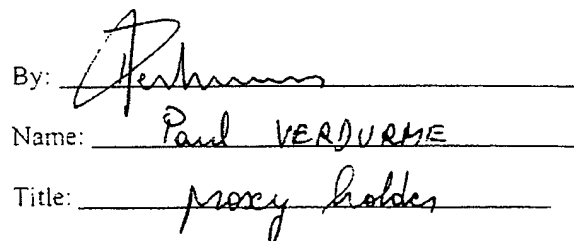 By:
Name: Paul VERDURME
Title: proxy holder